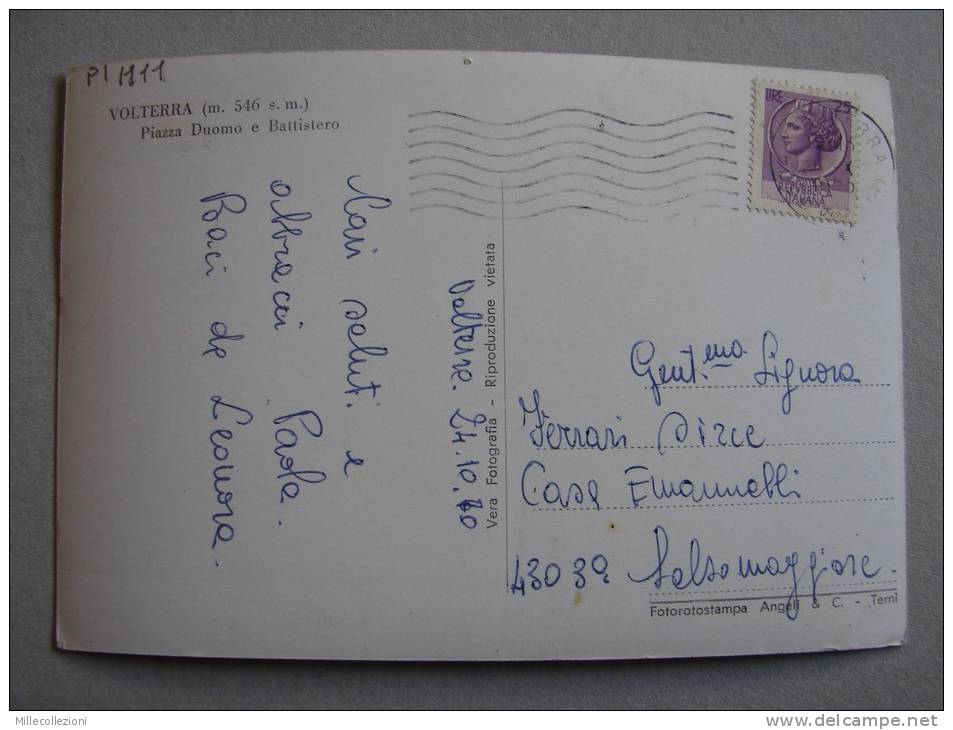 PI 1111
VOLTERRA (m. 546 s. m.)
Piazza Duomo e Battistero
LIRE 25
REPUBBLICA
ITALIANA
Cari saluti e
abbracci Paola.
Baci da Leonora.
Volterra. 24.10.70
Vera Fotografia - Riproduzione vietata
Gent.ma Signora
Ferrari Dirce
Casa Emannelli
43039 Salsomaggiore.
Fotorotostampa Angeli & C. - Terni
Millecollezioni
www.delcampe.net